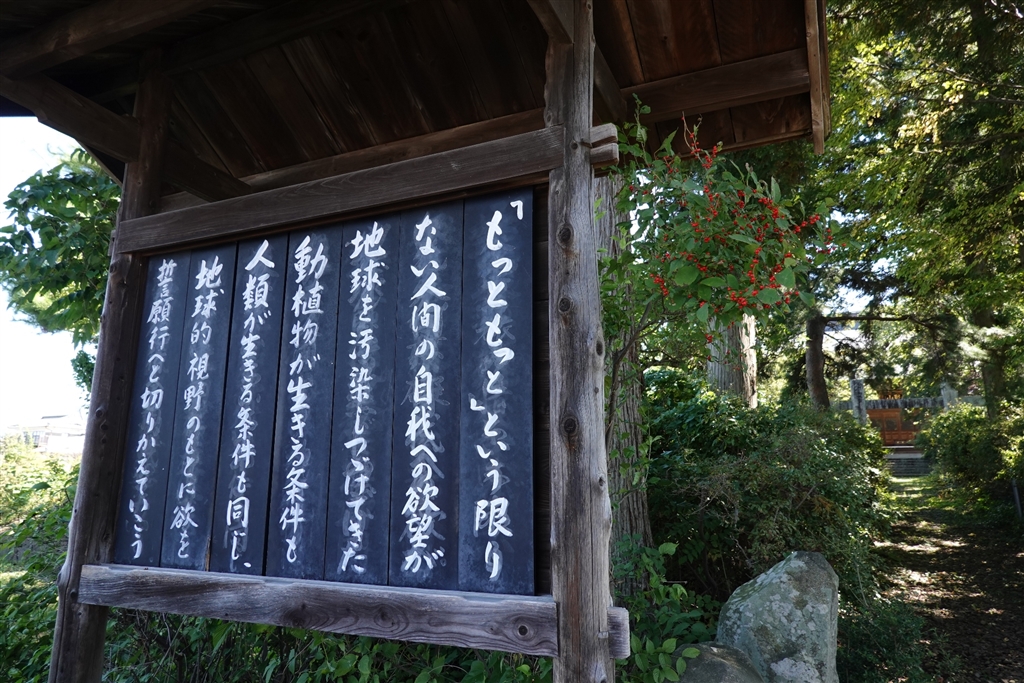 「もっともっと」という限り
ない人間の自我への欲望が
地球を汚染しつゞけてきた
動植物が生きる条件も
人類が生きる条件も同じ、
地球的視野のもとに欲を
誓願行へと切りかえていこう